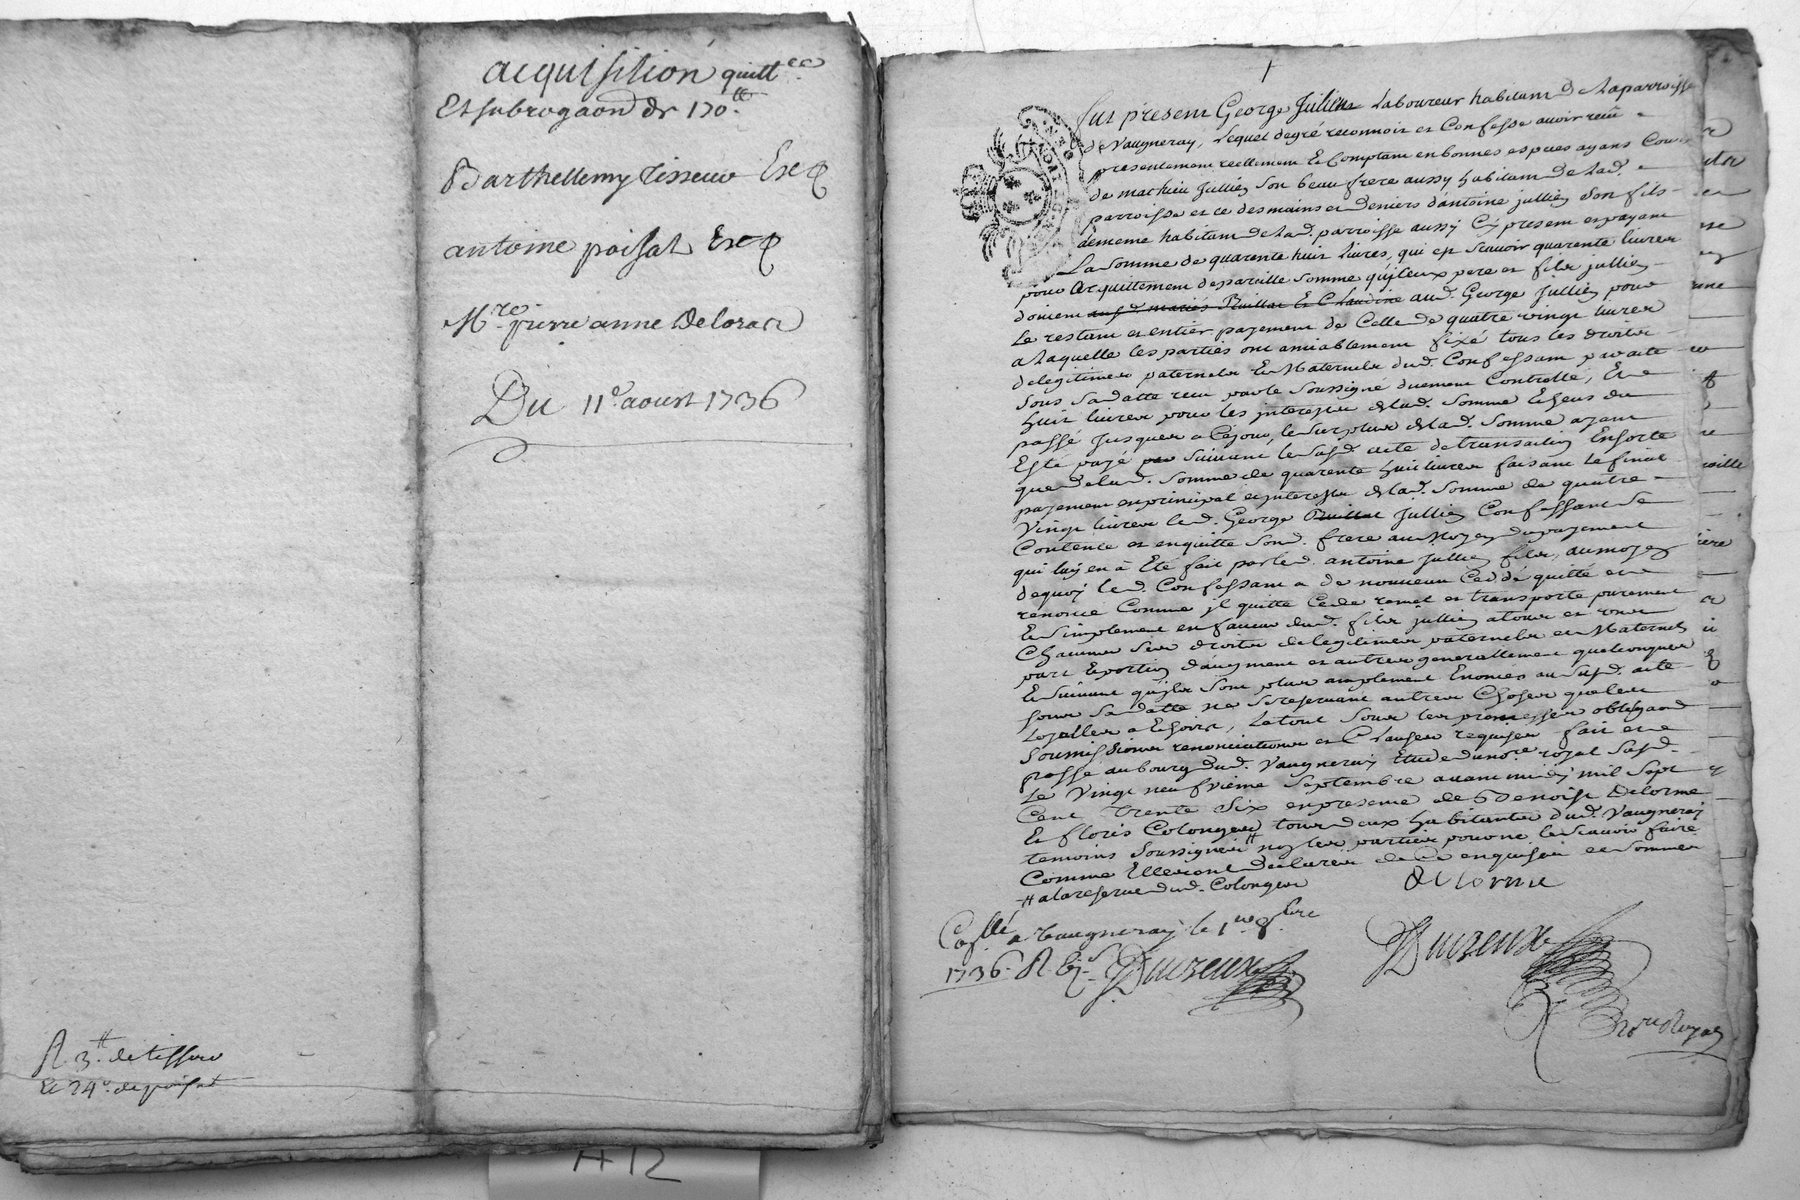 acquisition quitt.ce
Et subrogaon de 170.tt
Barthellemy Tisseur Ex q
antoine poisat Ex q
Mre pierre anne Delorac
Du 11e aoust 1736
R 3.tt de tisseur
et 24s de poisat
Fut présent George Jullien Laboureur habitant de la parroisse
de Vaugneray, Lequel de gré reconnoit et Confesse avoir reçu
présentement réellement & Comptant en bonnes espèces ayans Cours
de mathieu Jullien son beau frere aussy habitant de lad.
parroisse et ce des mains et deniers d'antoine jullien son fils
demême habitant de lad. parroisse aussy Cy present et payant
La somme de quarente huit livres, qui est scavoir quarente livres
pour Acquittement de pareille somme qu'iceux pere et fils jullien
doivent aud. George Jullien pour
Le restant et entier payement de Celle de quatre vingt livres
a laquelle les parties ont amiablement fixé tous les droits
de legitimes paternels & Maternels dud. Confessant par acte
sous sa datte reçu par le soussigné duement Controllé, Et
huit livres pour les interests de lad. somme Echeus du
passé jusques a Cejour, le surplus de lad. somme ayant
Esté payé suivant le susd. acte de transaction Ensorte
que de lad. somme de quarente huit livres faisant le final
payement en principal et interests de lad. somme de quatre
Vingt livres led. George Jullien Confessant se
Contente et en quitte sond. frere au Moyen du payement
qui luy en a Eté fait par led. antoine Jullien fils, au moyen
dequoy led. Confessant a de nouveau Ceddé quitté et
renoncé Comme jl quitte Cede remet et transporte purement
& simplement en faveur dud. fils jullien a tous et uns
Chacuns ses droits de legitimes paternels et Maternels
part & portion d'augment et autres generallement quelconques
& suivant qu'ils sont plus amplement Enoncés au susd. acte
sous sa datte ne se reservant autres Choses que les
Loyalles Echoirs, Le tout sous les promesses obligaons
soumissions renonciations et Clauses requises fait et
passé au bourg dud. Vaugneray Etude du nore royal susd.
Le Vingt neufvieme septembre avant midy mil sept
Cent trente six en presence de Benoist Delorme
Et floris Colonges tous deux habitants dud. Vaugneray
temoins soussignés tt non les parties pour ne le scavoir faire
Comme Elles ont declaré de Ce enquises et sommées
tt a la reserve dud. Colonges
delorme
Collé a Vaugneray le 1er 8bre
1736. R Duizeux
Duizeux
nore Royal
A12